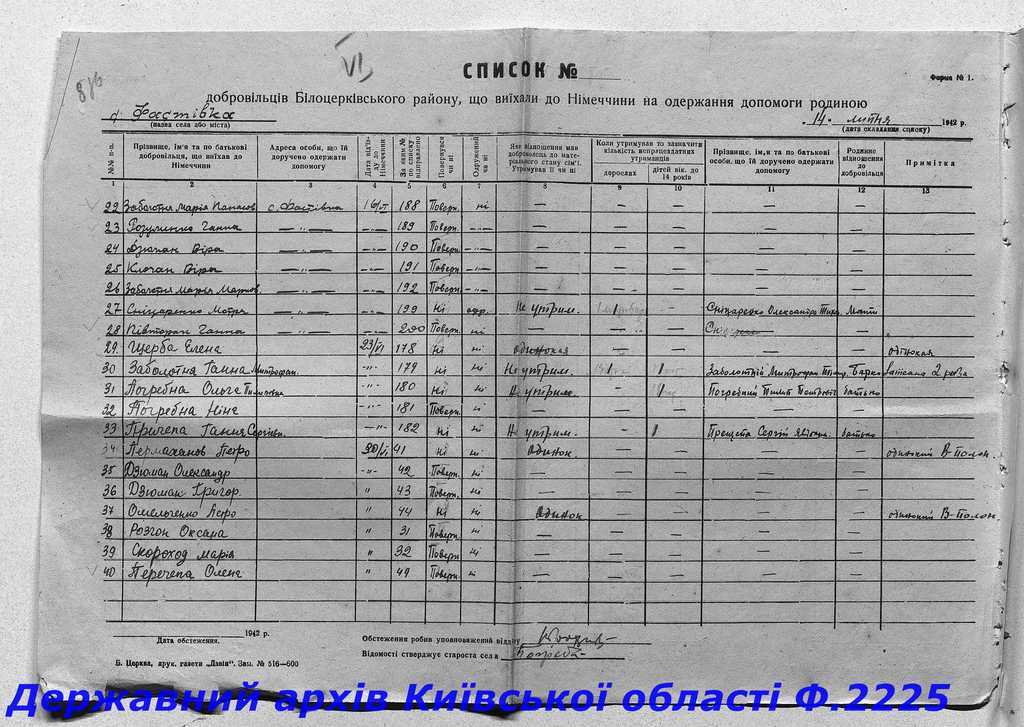 VI
СПИСОК №
Форма № 1.
добровільців Білоцерківського району, що виїхали до Німеччини на одержання допомоги родиною
с. Фастівка
(назва села або міста)
14. липня 1942 р.
(дата складання списку)
№№ п-п. Прізвище, ім'я та по батькові добровільця, що виїхав до Німеччини Адреса особи, що їй доручено одержати допомогу Дата від'їзду до Німеччини За яким № по списку відправлено Повернувся чи ні Одружений чи ні Яке відношення мав доброволець до матеріального стану сім'ї. Утримував її чи ні Коли утримував то зазначити кількість непрацездатних утриманців дорослих дітей вік. до 14 років Прізвище, ім'я та по батькові особи, що їй доручено одержати допомогу Родинне відношення до добровільця Примітка
1 2 3 4 5 6 7 8 9 10 11 12 13
22 Заболотня Марія с. Фастівка 16/VI 188 Поверн. ні — — — — —
23 Розуменко Ганна — „ — — „ — 189 Поверн. — „ — — — — — —
24 Дзюман Віра — „ — — „ — 190 Поверн. — „ — — — — — —
25 Клочан Віра — „ — — „ — 191 Поверн — „ — — — — — —
26 Заболотня Марія — „ — — „ — 192 Поверн. — „ — — — — — —
27 Сніцаренко Мотря — „ — — „ — 199 ні одр. Не утрим. 1 - Сніцаренко Олександра Мати
28 Півторан Ганна — „ — — „ — 200 Поверн. ні — — — —
29. Щерба Елена 23/VI 178 ні ні одинокая — — — — одинокая
30 Заболотня Ганна Митрофан. -„- 179 ні ні Не утрим. 1 1 Заболотній Митрофан
31 Погребна Ольга Пилиповна -„- 180 ні ні Не утрим. — 1 Погребний Пилип Петрович батько
32 Погребна Ніна -„- 181 Поверн. ні — — — — —
33 Причепа Ганна Сергіївн. -„- 182 ні ні Не утрим. — 1 Сергій батько
34 Петро 30/VI 41 ні ні Одинок. — — — — одинокий В полон.
35 Дзюман Олександр -„- 42 Поверн. ні — — — — —
36 Дзюман Григор. „ 43 Поверн. ні — — — — —
37 Омельченко Петро „ 44 ні ні Одинок — — — — одинокий В-полон.
38 Розгон Оксана „ 31 Поверн. ні — — — — —
39 Скороход Марія „ 32 Поверн. ні — — — — —
40 Перечепа Олена „ 49 Поверн. ні — — — — —
1942 р.
Дата обстеження.
Обстеження робив уповноважений відділу
Відомості стверджує староста села
Б. Церква, друк. газети „Дзвін“. Зам. № 516—600
Державний архів Київської області Ф.2225